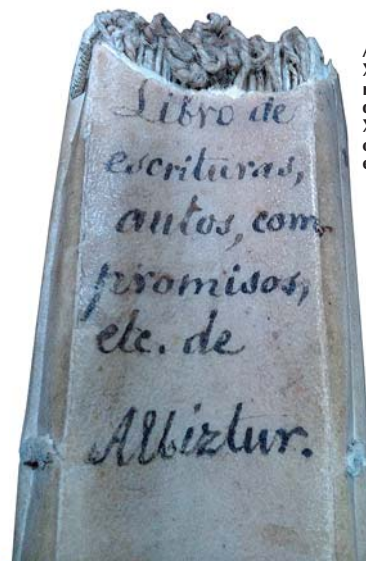 Libro de
escrituras,
autos, com-
promisos,
etc. de
Albiztur.